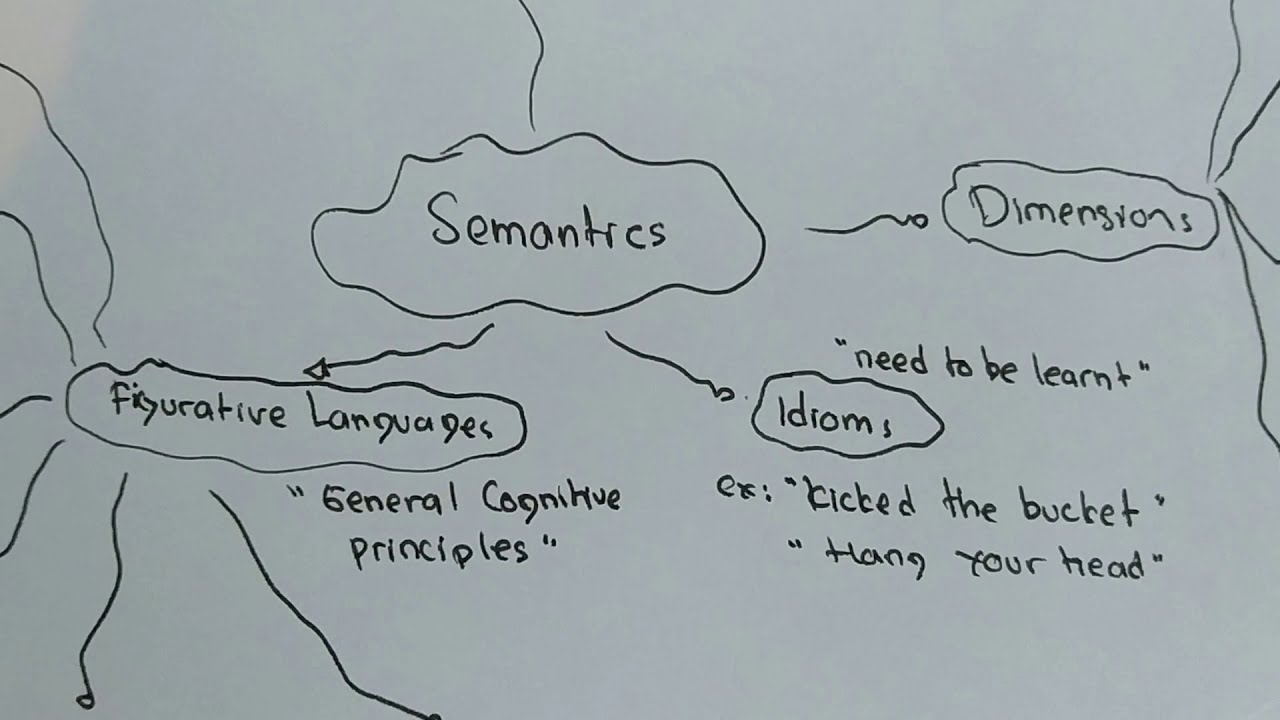 Semantics
Dimensions
"need to be learnt"
Figurative Languages
Idioms
"General Cognitive
principles"
ex: "kicked the bucket"
"Hang your head"